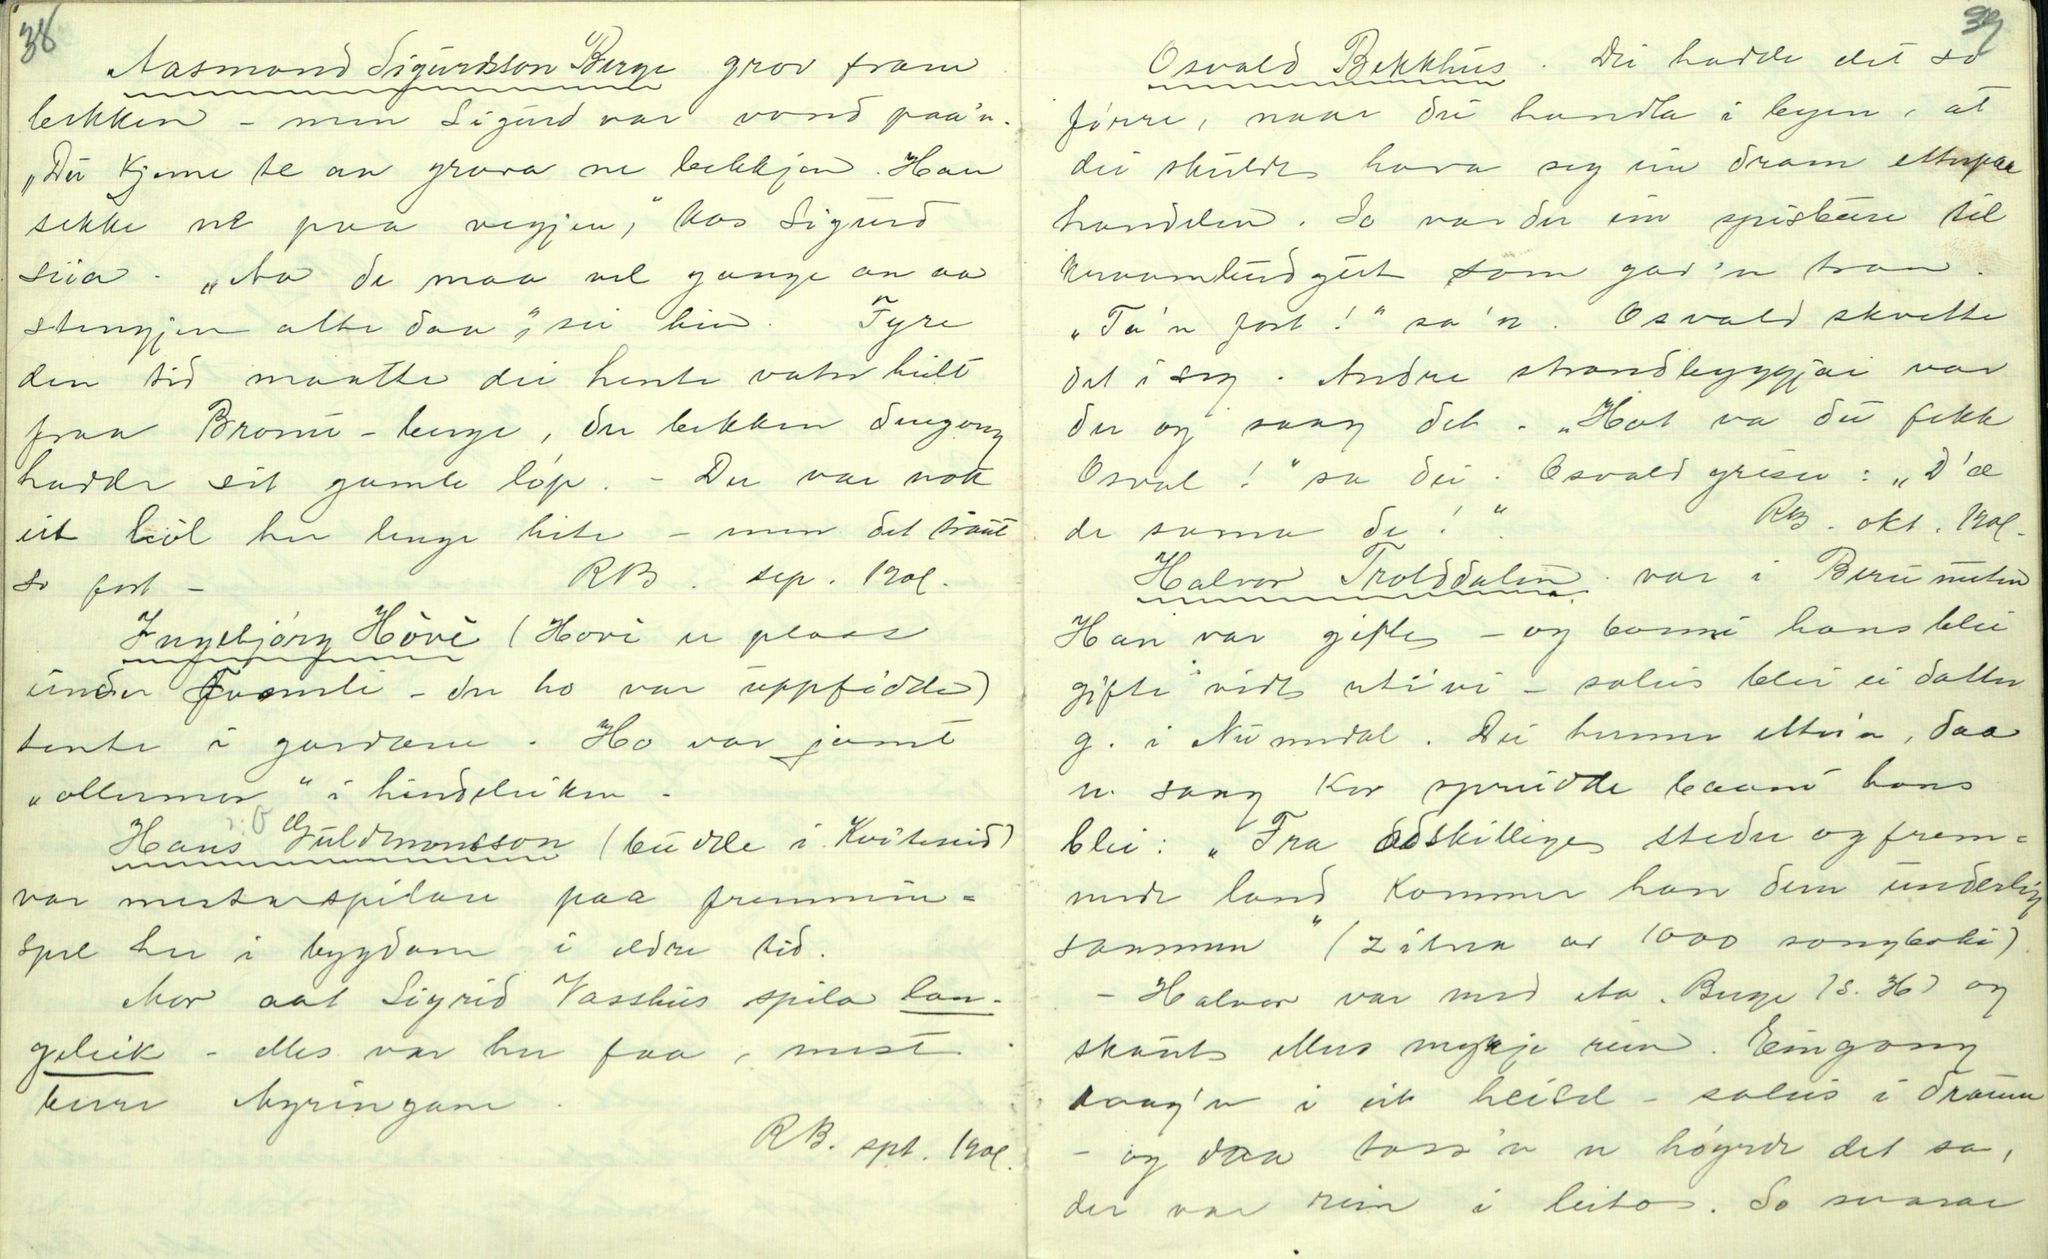 38
Aasmond Sigurdsson Berge grov fram
bekken - men Sigurd var vond paa'n.
"Du kjeme te an grava ne bekkjen. Han
sekke ne paa vegjen," kas Sigurd
siia. "Aa de maa vel gange an aa
stengjen atte daa", sei hin. Fyre
den tid maatte dei hente vatn heilt
fraa Bromè-berge, der bekken dengong
hadde sit gamle løp. - Der var nok
eit hòl her lenge bite - men det traut
so fort - RB. sep. 1901.
Ingebjørg Hòvè (Hovè er plass
under - der ho var uppfødde)
tente i gardane. Ho var jamt
"ollermor" i hindeleiken.
Hans Guldmonsson (budde i Kviteseid)
var mestarspilare paa fremmin=
spel her i bygdom i eldre tid.
Mor aat Sigrid Vasshus spila lan-
geleik - elles var her faa, mest
berre Myringane.
RB. spt. 1901.
39
Osvald Bekkhus. Dei hadde det so
førre, naar dei handla i byen, at
dei skulde hava seg ein dram etterpaa
handelen. So var der ein spisbue til
kraambudgut som gav'n tran.
"Ta'n fort!" sa'n. Osvald skvette
det i seg. Andre strandbyggjar var
der og saag det. "Hot va du fekk
Osval!" sa dei. Osvald greser: "D'æ
de sama de!" RB. okt. 1901.
Halvor Trolddalen var i
Han var gifte - og bornè hans blei
gifte vidt utivi - soleis blei ei datter
g. i Numedal. Dei hermer etter'n, daa
n. saag kor spreidde baanè hans
blei: "Fra adskillige steder og frem=
mede land kommer han dem underlig
sammen" (av 1000 songboki)
- Halvor var med Aa. Berge (S. H) og
skaut elles mykje rein. Eingong
saag'n i eit heisl - soleis i draum
- og daa toss'n n høyrde det sa,
der var rein i leitos. So svarar